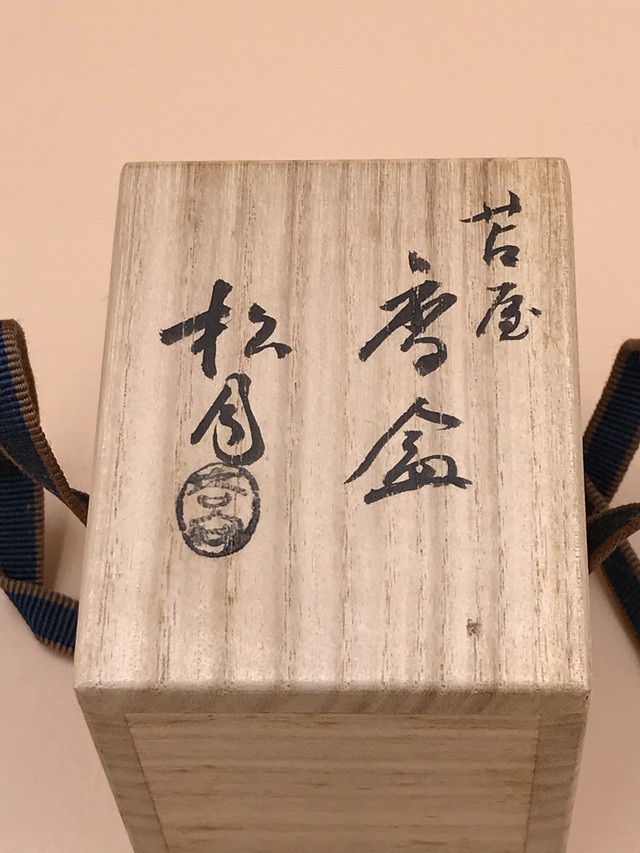 苫屋
香盒
松月